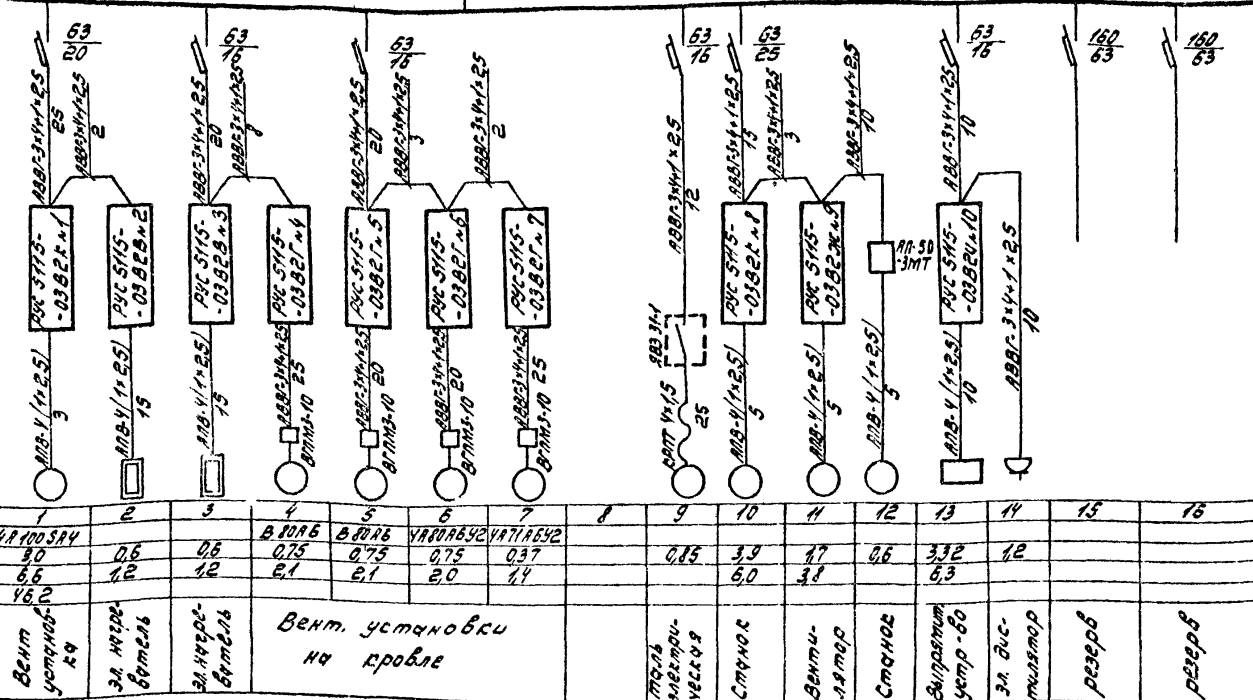 63
20
63
16
63
16
63
16
63
25
63
16
160
63
160
63
АВВГ-3х4+1х2,5
25
АВВГ-3х4+1х2,5
2
АВВГ-3х4+1х2,5
20
АВВГ-3х4+1х2,5
8
АВВГ-3х4+1х2,5
20
АВВГ-3х4+1х2,5
3
АВВГ-3х4+1х2,5
2
АВВГ-3х4+1х2,5
12
АВВГ-3х4+1х2,5
15
АВВГ-3х4+1х2,5
3
АВВГ-3х4+1х2,5
10
АВВГ-3х4+1х2,5
10
РУС 5115-
-03В2К №1
РУС 5115-
-03В2В №2
РУС 5115-
-03В2В №3
РУС 5115-
-03В2Г №4
РУС 5115-
-03В2Г №5
РУС 5115-
-03В2Г №6
РУС 5115-
-03В2Г №7
РУС 5115-
-03В2К №8
РУС 5115-
-03В2Ж №9
АП-50
-3МТ
РУС 5115-
-03В2И №10
АВВГ-3х4+1х2,5
10
ЯВЗ 31-1
АПВ-4/1х2,5/
3
АПВ-4/1х2,5/
15
АПВ-4/1х2,5/
15
АВВГ-3х4+1х2,5
25
ВГПМЗ-10
АВВГ-3х4+1х2,5
20
ВГПМЗ-10
АВВГ-3х4+1х2,5
20
ВГПМЗ-10
АВВГ-3х4+1х2,5
25
ВГПМЗ-10
ВРПТ 4х1,5
25
АПВ-4/1х2,5/
5
АПВ-4/1х2,5/
5
АПВ-4/1х2,5/
5
АПВ-4/1х2,5/
10
1 2 3 4 5 6 7 8 9 10 11 12 13 14 15 16
4А100SА4 В80А6 В80А6 4А80А6У2 4А71А6У2
3,0 0,6 0,6 0,75 0,75 0,75 0,37 0,85 3,9 1,7 0,6 3,32 1,2
6,6 1,2 1,2 2,1 2,1 2,0 1,4 6,0 3,8 6,3
46,2
Вент
установ-
ка
эл. нагре-
ватель
эл. нагре-
ватель
Вент. установки
на кровле
таль
электри-
ческая
Станок
Венти-
лятор
Станок
Выпрямит.
устр-во
эл. дис-
тилятор
резерв
резерв